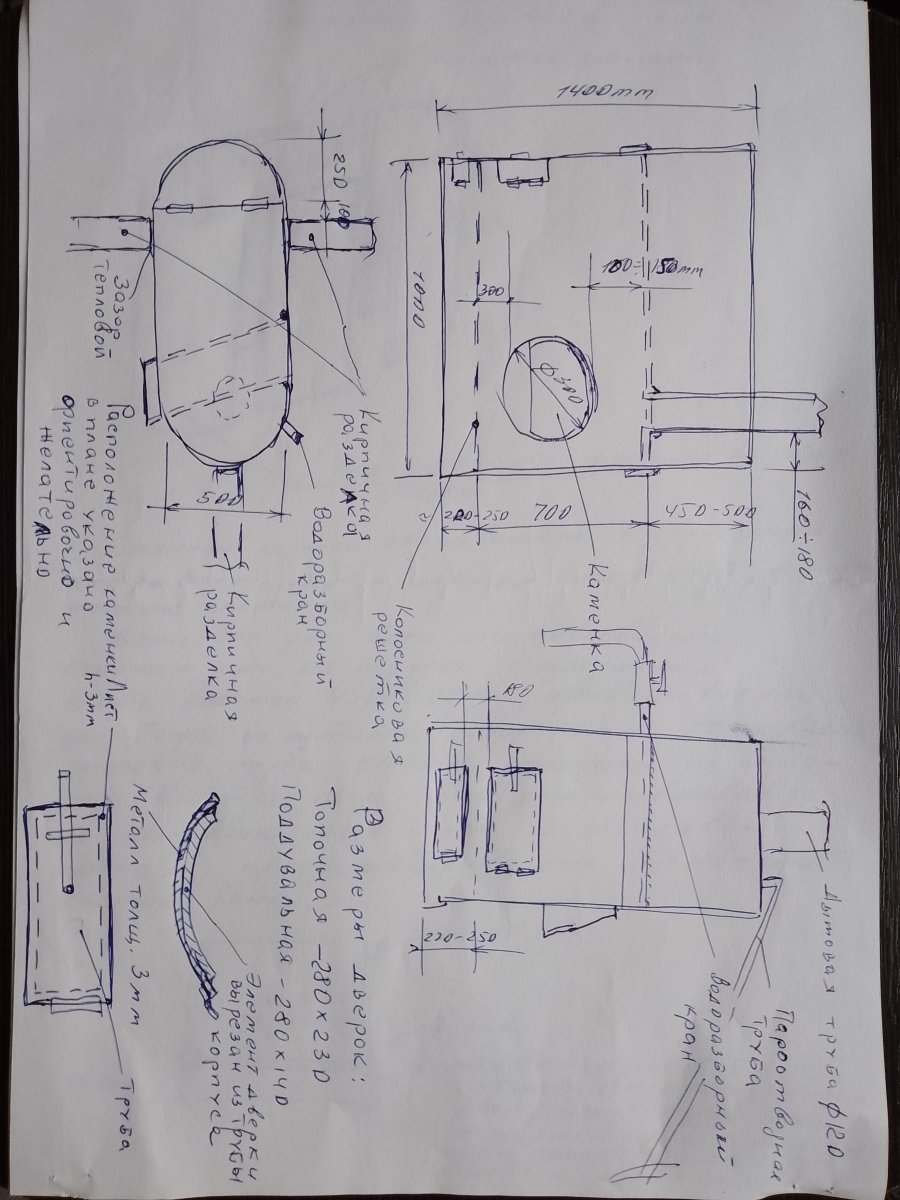 1400mm
250
100
100÷150mm
300
1000
ф380
Зазор
тепловой
Кирпичная
разделка
500
200-250
700
450-500
160÷180
Водоразборный
кран
Каменка
Колосниковая
решетка
Кирпичная
разделка
Расположение каменки
в плане указано
ориентировочно и
желательно
Лист
h-3mm
180
Размеры дверок:
Топочная -280х230
Поддувальная -280х140
220-250
Дымовая труба ф120
Пароотводная
труба
Водоразборный
кран
Металл толщ. 3мм
Элемент дверки
вырезан из трубы
корпуса
Труба